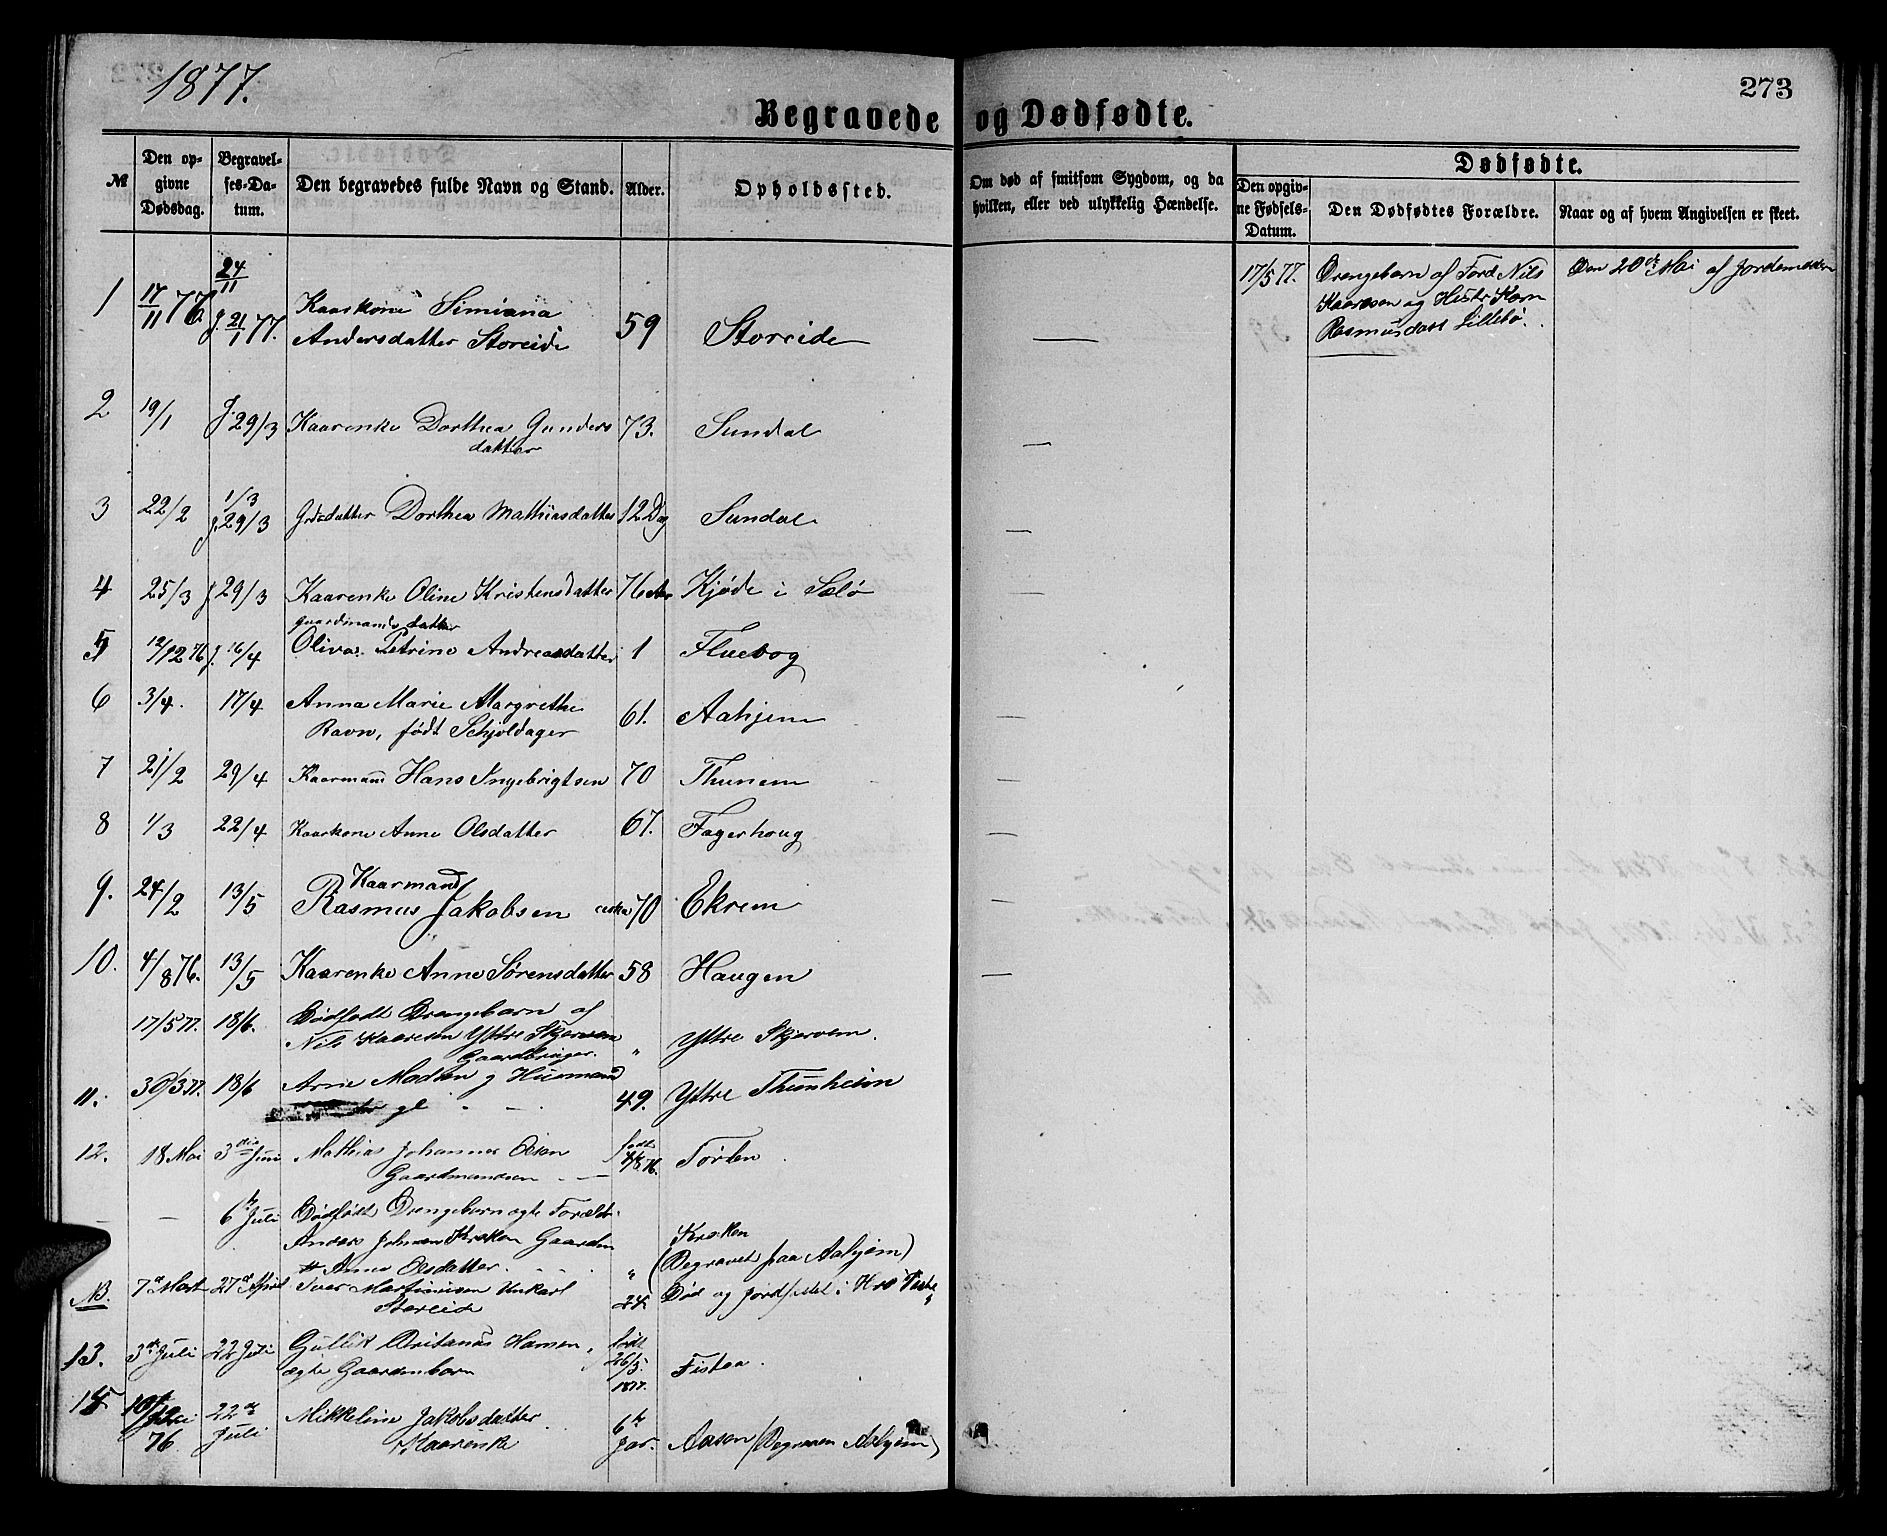 1877.
273
Begravede og Dødfødte.
№
Den opgivne Dødsdag.
Begravelses-Datum.
Den begravedes fulde Navn og Stand.
Alder.
Opholdssted.
Om død af smitsom Sygdom, og da hvilken, eller ved ulykkelig Hændelse.
Dødfødte.
Den opgivne Fødsels-Datum.
Den Dødfødtes Forældre.
Naar og af hvem Angivelsen er skeet.
1 17/11 76. 24/11 J. 21/1 77. Kaarkone Simiana
Andersdatter Storeide 59 Storeide —
17/5 77. Drengebarn af Ford Nils Den 20de Mai af Jordemoderen
Kaaresen og Hustr Karn
Rasmusdatt Lillebø.
2 19/1 J. 29/3 Kaarenke Dorthea Gunders
datter 73. Sundal —
3 22/2 1/3 J. 29/3 Grdsdatter Dorthea Mathiasdatter 12 Dag Sundal —
4 25/3 J 29/3 Kaarenke Oline Kristensdatter 76 Aar Kjøde i Selø —
gaardmandsdatter
5 12/12 76 J. 16/4 Oliva Petrine Andreasdatter 1 Fluevog —
6 3/4. 17/4 Anna Marie Margrethe
Ravn, født Schjoldager 61. Aahjem —
7 21/2 29/4 Kaarmand Hans Ingebrigtsen 70 Thunem —
8 1/3 22/4 Kaarkone Anne Olsdatter 67. Fagerhoug —
9. 24/2 13/5 Kaarmand
Rasmus Jakobsen cirka 70 Ekrem —
10. 4/8 76. 13/5 Kaarenke Anne Sørensdatter 58 Haugen —
17/5 77. 18/6. Dødfødt Drengebarn af
Nils Kaaresen Yttre Skjervem
Gaardbruger. " Yttre Skjervem.
11. 30/3 77. 18/6 Arne Madsen g Husmand
49. Yttre Thunheim
12. 18 Mai 3die Juni Mathias Johannes Olsen
Gaardmandssøn født 4/8 76. Torlen
— — 6te Juli Dødfødt Drengebarn ægte Foræld.
Anders Johnsen Kroken Gaardm
& Anne Olsdatter. " Kroken
(Begravet paa Aahjem)
NB. 7de Mart 27de April Iver Martinusen Unkarl
Storeide 24 Død og jordfestet i Hrs
13. 3de Juli 22 Juli Gullik Britanus Hansen,
ægte Gaardmbarn født 26/5 1877. Fistea.
14 76 22de Juli Mikkeline Jakobsdatter
Kaarenke Aasen (Begraven Aahjem)